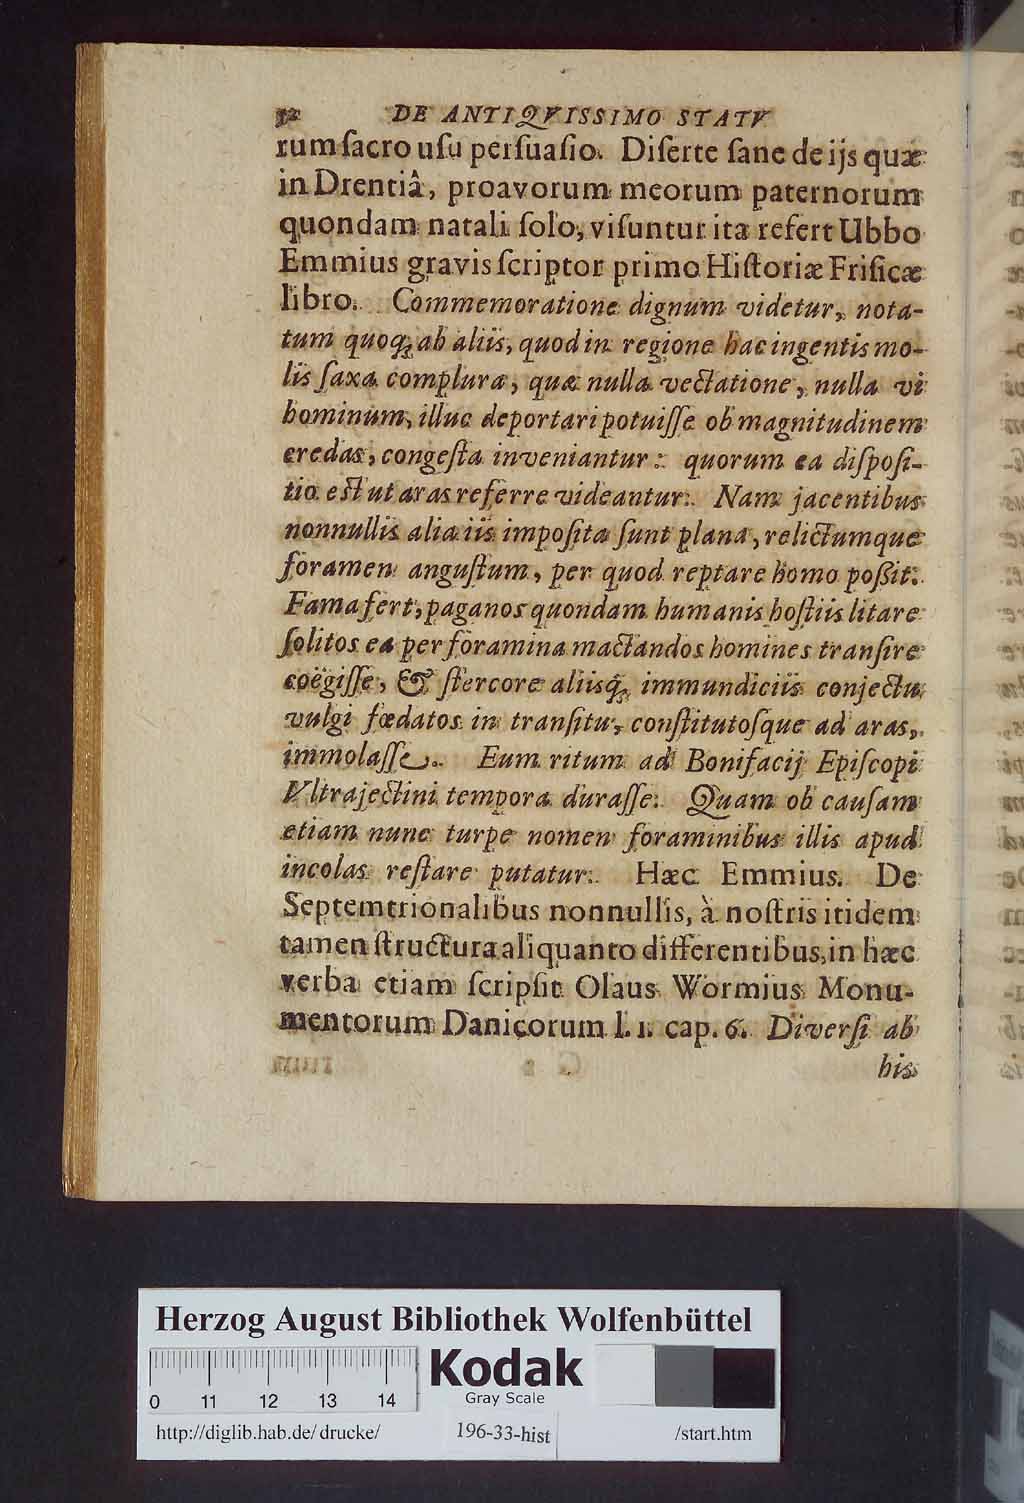 32 DE ANTIQVISSIMO STATV
rum ſacro uſu perſuaſio. Diſerte ſane de ijs quæ
in Drentiâ, proavorum meorum paternorum
quondam natali ſolo, viſuntur ita refert Ubbo
Emmius gravis ſcriptor primo Hiſtoriæ Friſicæ
libro. Commemoratione dignum videtur, nota-
tum quoq; ab aliis, quod in regione hac ingentis mo-
lis ſaxa complura, quæ nulla vectatione, nulla vi
hominum, illuc deportari potuiſſe ob magnitudinem
credas, congeſta inveniantur: quorum ea diſpoſi-
tio eſt ut aras referre videantur. Nam jacentibus
nonnullis alia iis impoſita ſunt plana, relictumque
foramen anguſtum, per quod reptare homo poßit.
Fama fert, paganos quondam humanis hoſtiis litare
ſolitos ea per foramina mactandos homines tranſire
coëgiſſe, & ſtercore aliisq; immundiciis conjectu
vulgi fœdatos in tranſitu, conſtitutoſque ad aras,
immolaſſe. Eum ritum ad Bonifacij Epiſcopi
Vltrajectini tempora duraſſe. Quam ob cauſam
etiam nunc turpe nomen foraminibus illis apud
incolas reſtare putatur. Hæc Emmius. De
Septemtrionalibus nonnullis, à noſtris itidem
tamen ſtructura aliquanto differentibus, in hæc
verba etiam ſcripſit Olaus Wormius Monu-
mentorum Danicorum l. 1. cap. 6. Diverſi ab
his
Herzog August Bibliothek Wolfenbüttel
Kodak
Gray Scale
0 11 12 13 14
http://diglib.hab.de/drucke/ 196-33-hist /start.htm